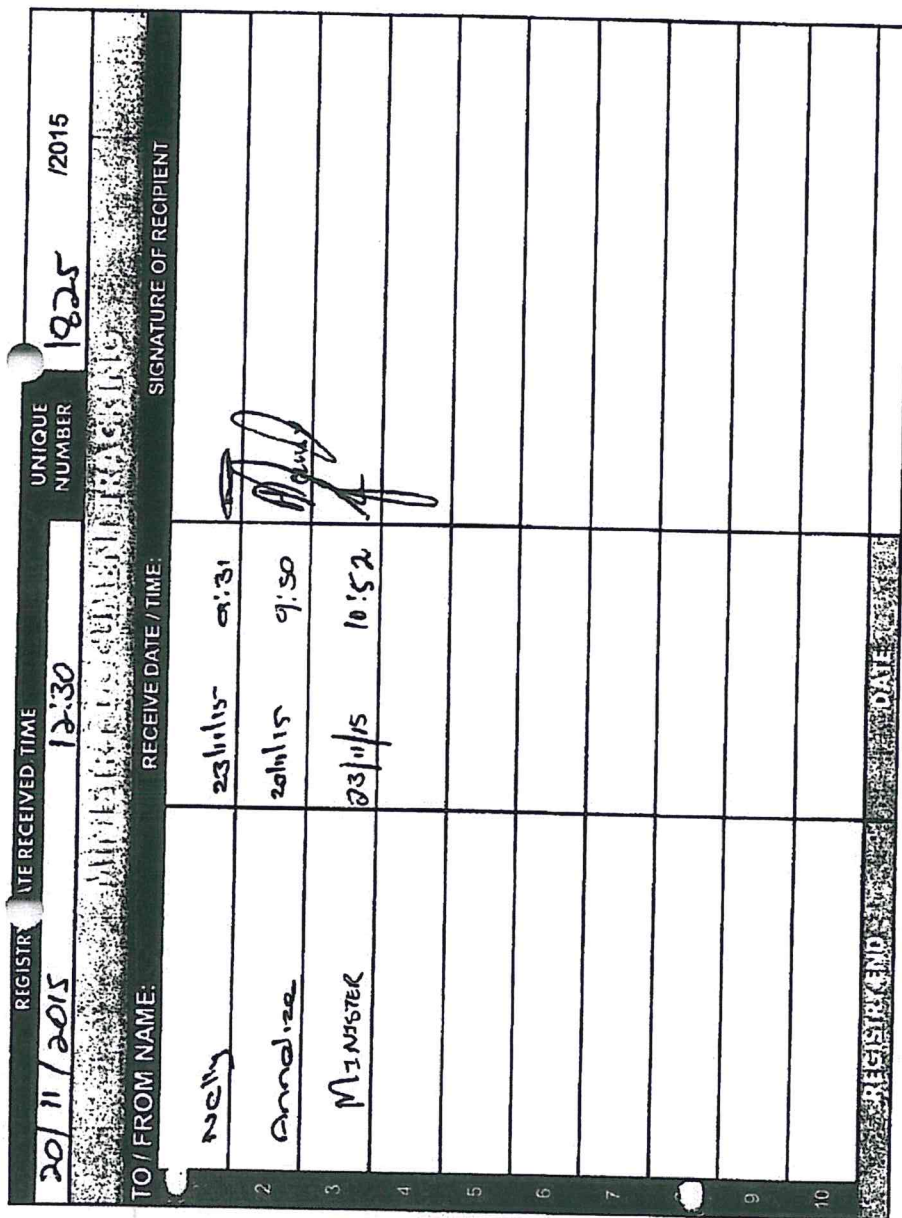 REGISTR ATE RECEIVED TIME UNIQUE NUMBER
20/11/2015 12:30 1825 /2015
DOCUMENT TRACKING
TO / FROM NAME: RECEIVE DATE / TIME: SIGNATURE OF RECIPIENT
Nelly 23/11/15 9:31
2 Annalize 20/11/15 9:50
3 MINISTER 23/11/15 10:52
4
5
6
7
9
10
REGISTRY END DATE